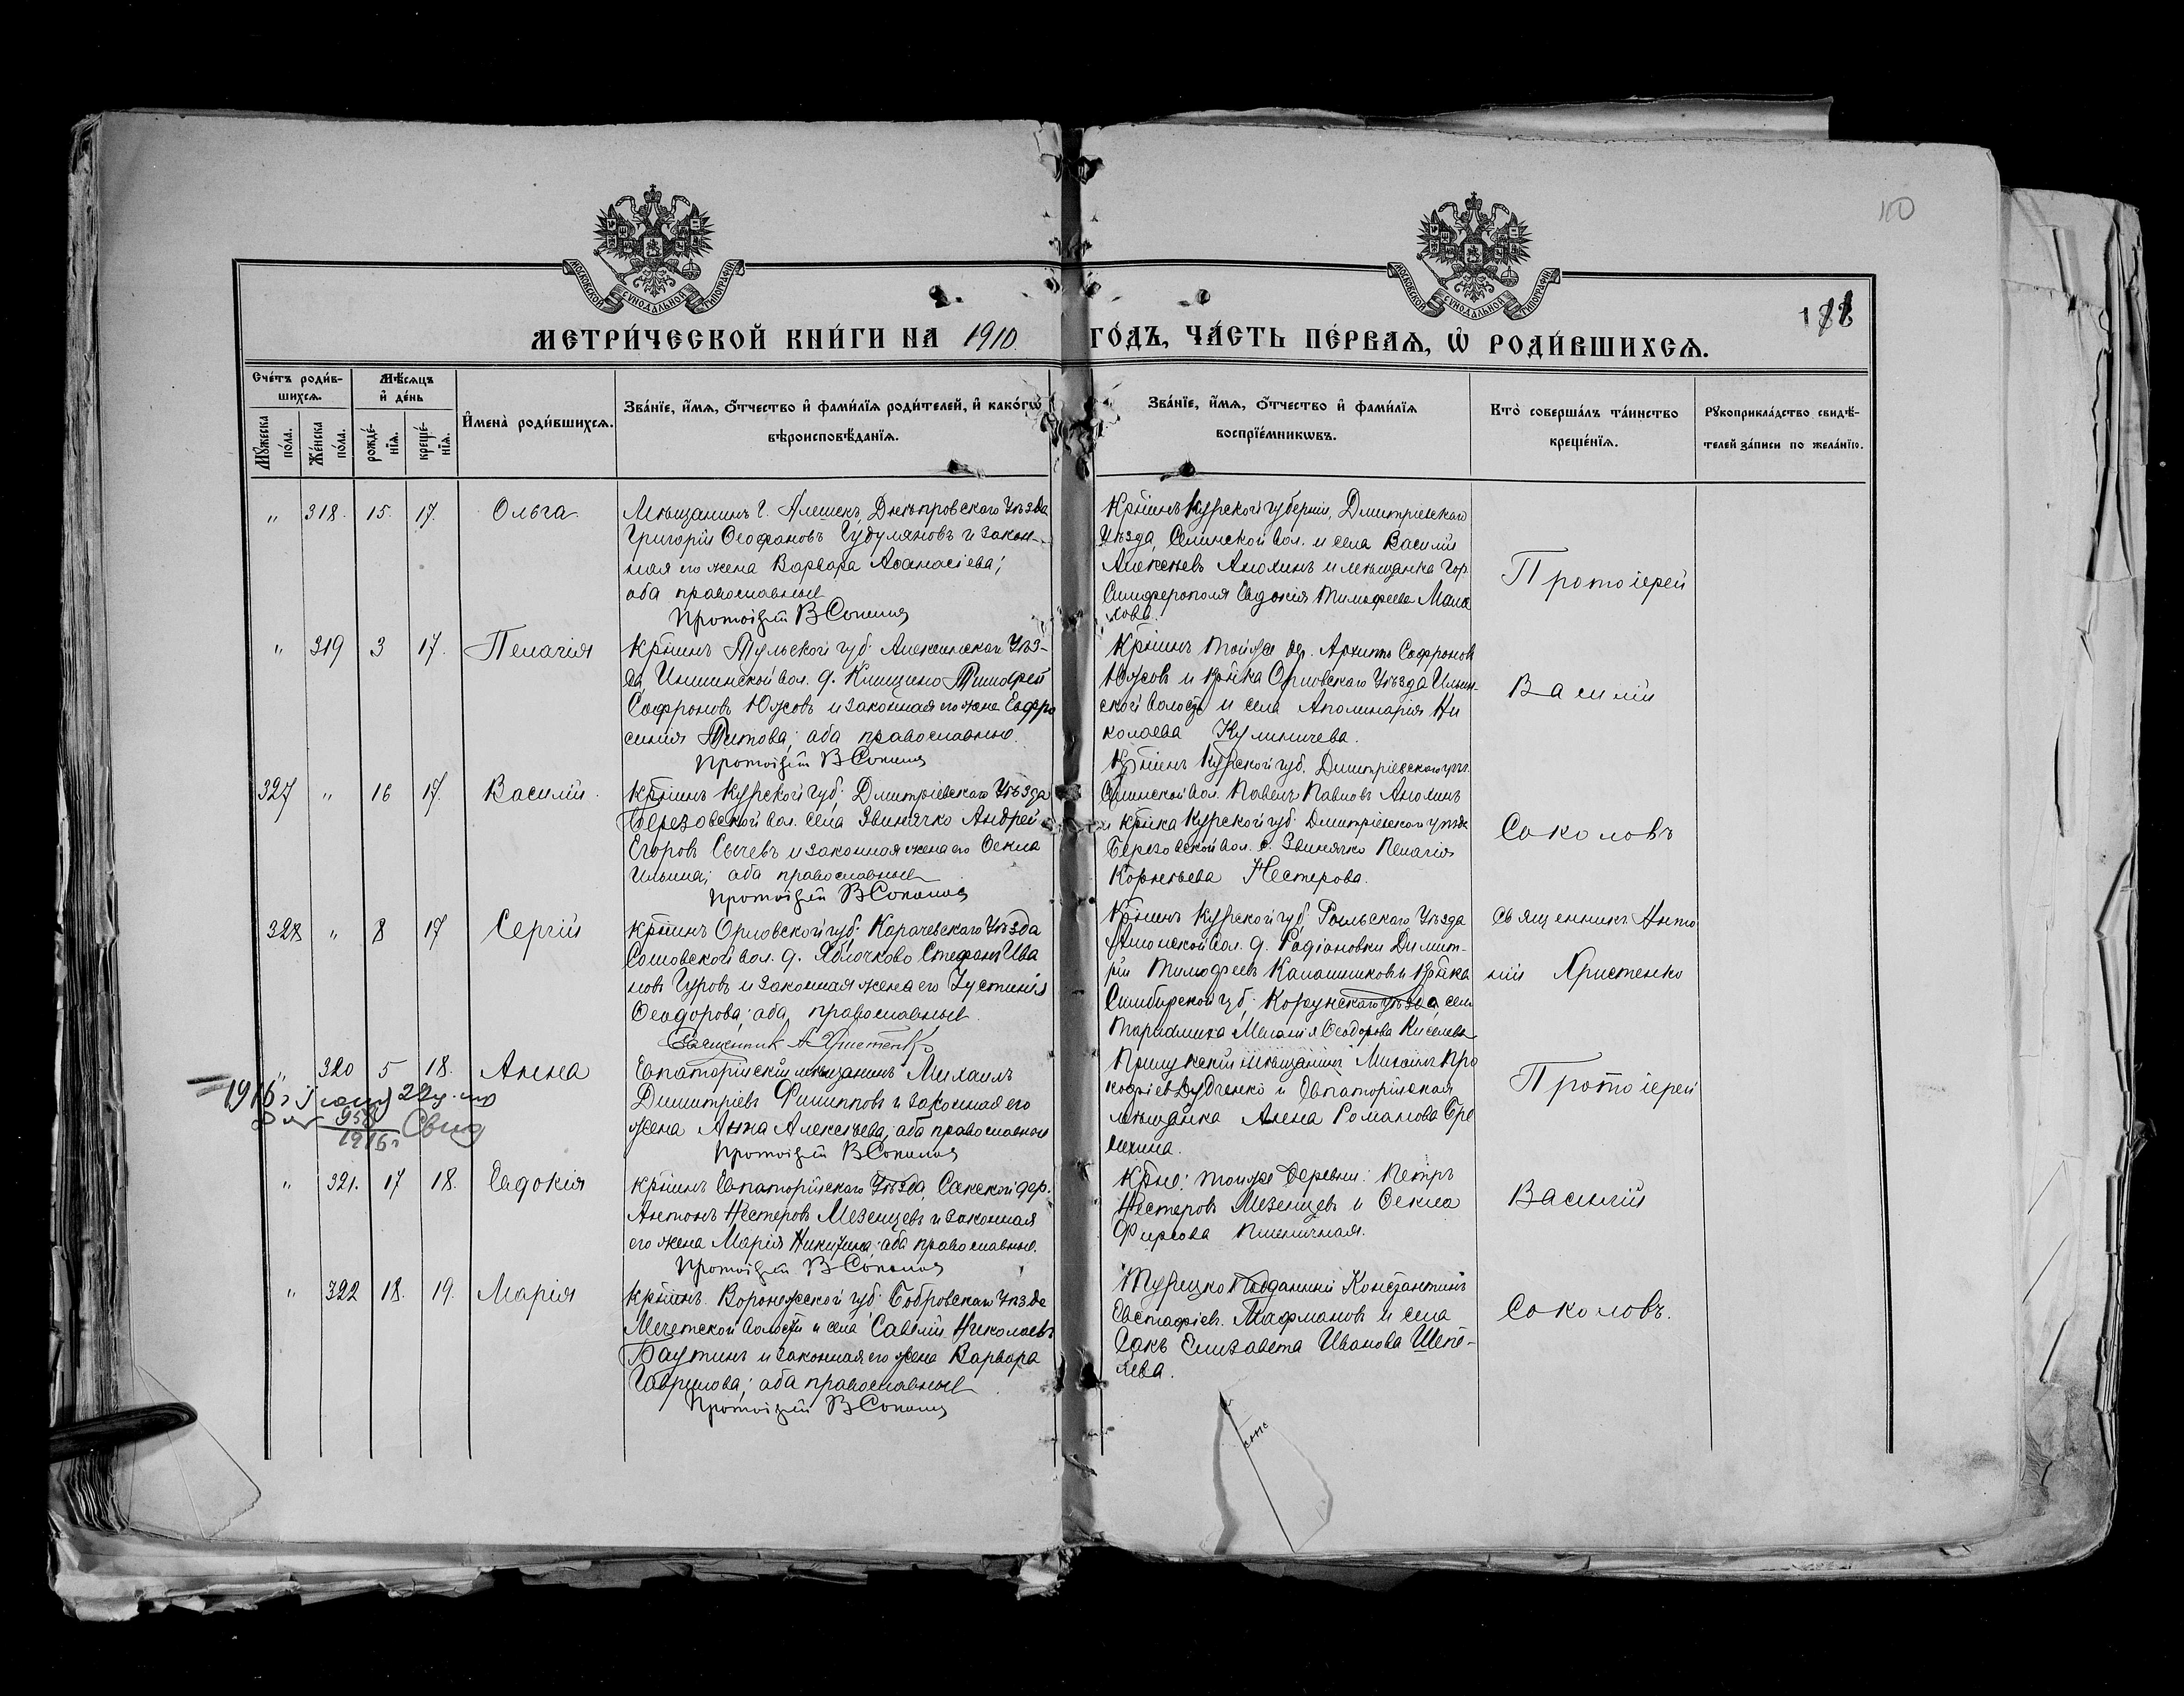 100
МОСКОВСКОЙ СѴНОДАЛЬНОЙ ТИПОГРАФІИ
МОСКОВСКОЙ СѴНОДАЛЬНОЙ ТИПОГРАФІИ
МЕТРИ́ЧЕСКОЙ КНИ́ГИ НА 1910 ГО́ДЪ, ЧА́СТЬ ПЕ́РВАѦ, Ѡ҆ РОДИ́ВШИХСѦ.
Сче́тъ роди́в-
шихсѧ.
Мꙋ́жеска по́ла.
Же́нска по́ла.
Мѣ́сѧцъ
и҆ де́нь
рожде́-
нїѧ.
креще́-
нїѧ.
И҆мена̀ роди́вшихсѧ.
Зва́нїе, и҆́мѧ, ѻ҆́тчество и҆ фами́лїѧ роди́телей, и҆ како́гѡ
вѣроисповѣ́данїѧ.
Зва́нїе, и҆́мѧ, ѻ҆́тчество и҆ фами́лїѧ
воспрїе́мникѡвъ.
Кто̀ соверша́лъ та́инство
креще́нїѧ.
Рꙋкоприкла́дство свидѣ́-
телей за́писи по жела́нїю.
" 318. 15. 17. Ольга
Мѣщанинъ г. Алешекъ, Днѣпровскаго Уѣзда
Григорій Ѳеофановъ Гудумяновъ и закон-
ная его жена Варвара Аѳанасіева;
оба православные
Протоіерей В Соколовъ
Кр̃нинъ Курской губерніи, Дмитріевскаго
Уѣзда, Селинской вол. и села Василій
Алексѣевъ Анохинъ и мѣщанка гор.
Симферополя Евдокія Тимофеева Мала
хова.
Протоіерей
" 319 3 17. Пелагія
Кр̃нинъ Тульской губ. Алексинскаго Уѣз-
да, вол. д. Клищино Тимофей
Софроновъ Южовъ и законная его жена Евфро
синия Титова; оба православные.
Протоіерей В Соколовъ
Кр̃нинъ той же дер. Архипъ Софроновъ
Южовъ и кр̃нка Орловскаго Уѣзда
ской волости и села Аполинарія Ни
колаева Кулиничева.
Василій
327 " 16 17. Василій.
Кр̃нинъ Курской губ. Дмитріевскаго Уѣзда
Березовской вол. села Звинячко Андрей
Егоровъ Сычевъ и законная жена его Ѳекла
Ильина; оба православные
Протоіерей В Соколовъ
Кр̃нинъ Курской губ. Дмитріевскаго уѣз.
Селинской вол. Павелъ Павловъ Анохинъ
и кр̃нка Курской губ. Дмитріевскаго уѣзда
Березовской вол. с. Звинячко Пелагія
Корнеьева Нестерова.
Соколовъ
328 " 8 17 Сергій
Кр̃нинъ Орловской губ. Карачевскаго Уѣзда
вол. д. Яблочково Стефанъ Ива
новъ Гуровъ и законная жена его Іустинія
Ѳеодорова; оба православные
Священник А Христенко
Кр̃нинъ Курской губ. Рыльскаго Уѣзда
вол. д. Родіоновки Димит-
рій Тимофеевъ Калашниковъ и кр̃нка
Симбирской губ. Корсунскаго уѣзда, села
Меланія Ѳеодорова Киселева
Священникъ Анто
ній Христенко
" 320 5 18. Анна
1916 г. Іюня 22
958
1916 г. Свид
Евпаторійскій мѣщанинъ Михаилъ
Димитріевъ Филипповъ и законная его
жена Анна Алексѣева; оба православные
Протоіерей В Соколовъ
Прилукскій мѣщанинъ Михаилъ Про
кофіевъ Дудченко и Евпаторійская
мѣщанка Анна Романова Бре
нехина.
Протоіерей
" 321. 17 18. Евдокія
Кр̃нинъ Евпаторійскаго Уѣзда, Сакской дер.
Антонъ Нестеровъ Мезенцевъ и законная
его жена Марія Никитина; оба православные.
Протоіерей В Соколовъ
Кр̃не: той же деревни: Петръ
Нестеровъ Мезенцевъ и Ѳекла
Фирсова Пшеничная.
Василій
" 322 18. 19. Марія
Кр̃нинъ. Воронежской губ. Бобровскаго Уѣзда
Мечетской волости и села Савелій Николаевъ
Баутинъ и законная его жена Варвара
Гаврилова; оба православные
Протоіерей В Соколовъ
Турецко Подданный Константинъ
Евстафіев. Тафмановъ и села
Сакъ Елизавета Иванова Шепе-
лева.
Соколовъ.